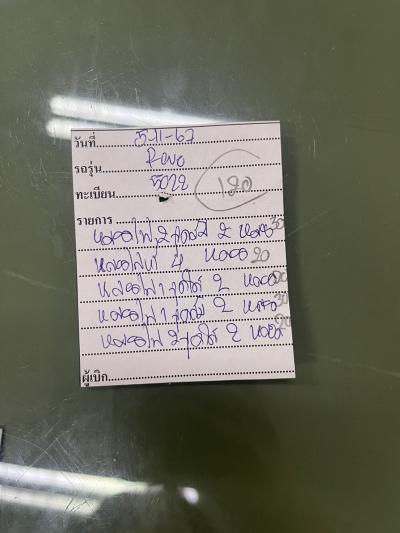 วันที่ 5-11-67
รถรุ่น Revo
ทะเบียน 5022 120
รายการ
หลอดไฟ 2 จุดส้ม 2 หลอด 30
หลอดไฟ 4 หลอด 20
หลอดไฟ 1 จุดใส 2 หลอด 20
หลอดไฟ 1 จุดส้ม 2 หลอด 30
หลอดไฟ 2 จุดใส 2 หลอด 20
ผู้เบิก